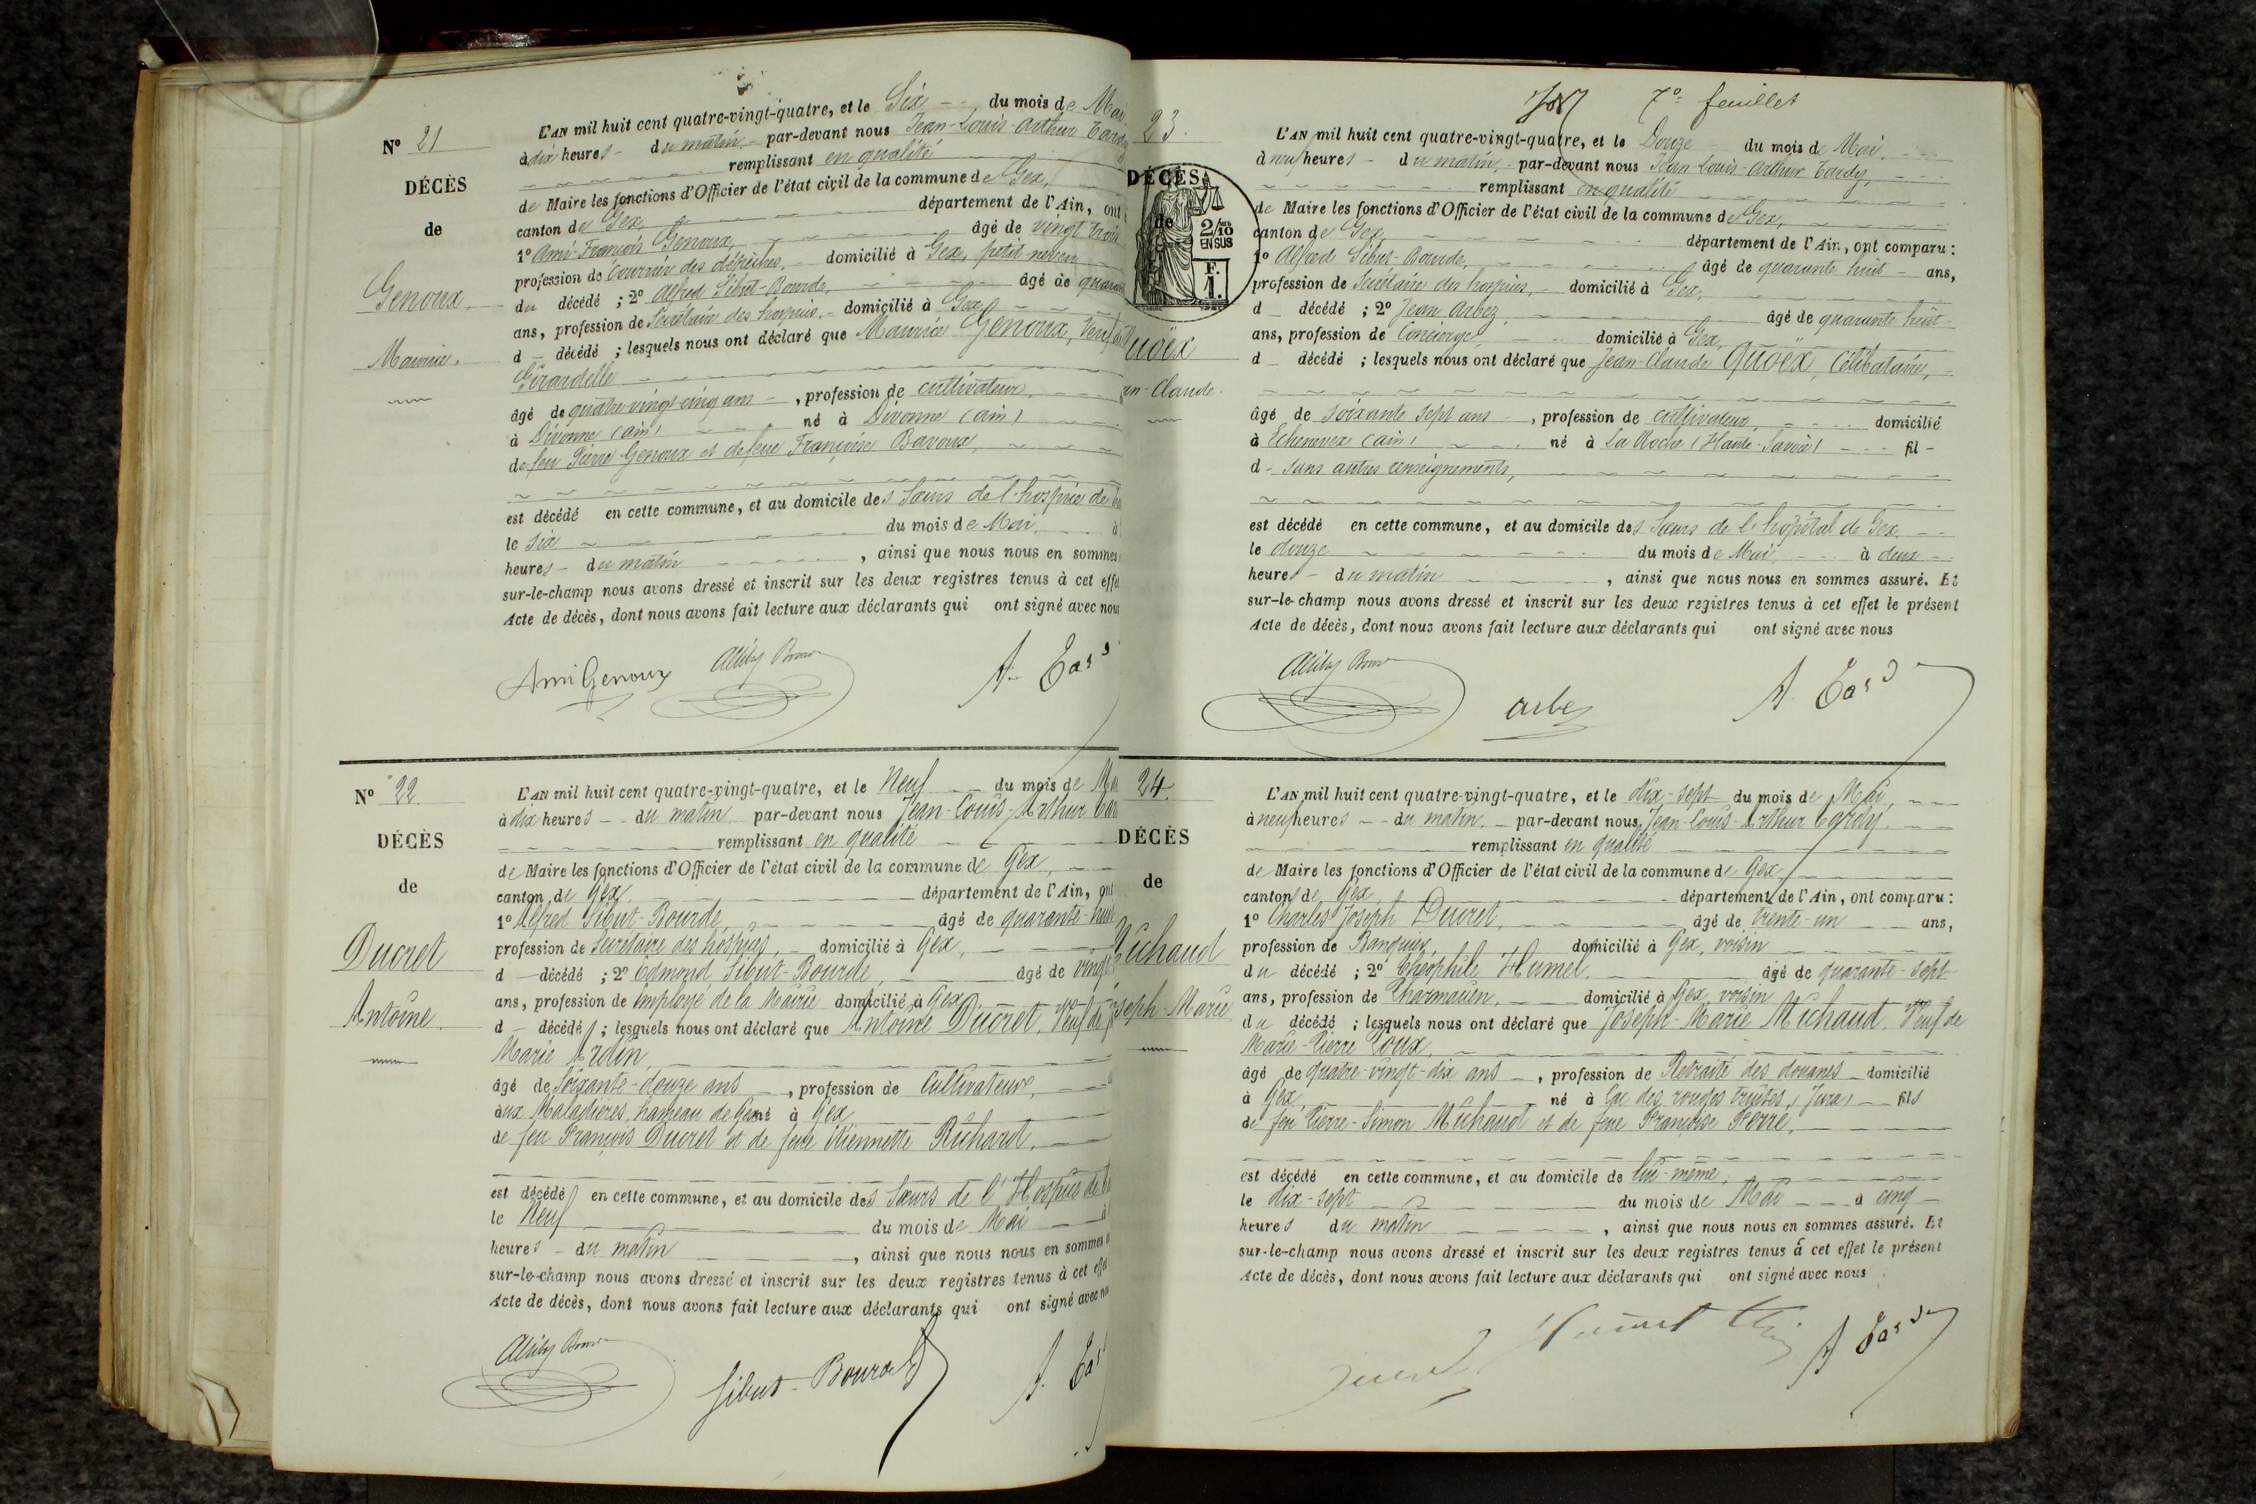 N° 21
DÉCÈS
de
Genoux
Maurice.
L'AN mil huit cent quatre-vingt-quatre, et le Six du mois de Mai
à dix heures du matin par-devant nous Jean-Louis-Arthur Tardy
remplissant en qualité
de Maire les fonctions d'Officier de l'état civil de la commune de Gex,
canton de Gex, département de l'Ain, ont
1° Ami-François Genoux, âgé de vingt trois
profession de Courrier des dépêches, domicilié à Gex, petit neveu
du décédé ; 2° Alfred Sibut-Bourde, âgé de
ans, profession de Secrétaire des hospices, domicilié à Gex
d décédé ; lesquels nous ont déclaré que Maurice Genoux,
Girardelle
âgé de quatre-vingt-cinq ans, profession de cultivateur,
à Divonne (ain) né à Divonne (ain)
de feu Pierre Genoux et de feue Françoise Bavoux,
est décédé en cette commune, et au domicile des Sœurs de l'hospice de
le six du mois de Mai à
heures du matin, ainsi que nous nous en sommes
sur-le-champ nous avons dressé et inscrit sur les deux registres tenus à cet effet
Acte de décès, dont nous avons fait lecture aux déclarants qui ont signé avec nous
Ami Genoux
N° 22
DÉCÈS
de
Ducret
Antoine.
L'AN mil huit cent quatre-vingt-quatre, et le Neuf du mois de
à dix heures du matin par-devant nous Jean-Louis-Arthur
remplissant en qualité
de Maire les fonctions d'Officier de l'état civil de la commune de Gex,
canton de Gex, département de l'Ain, ont
1° Alfred Sibut-Bourde, âgé de quarante-huit
profession de Secrétaire des hospices, domicilié à Gex,
d décédé ; 2° Edmond Sibut-Bourde, âgé de vingt
ans, profession de Employé de la Mairie domicilié à Gex
d décédé ; lesquels nous ont déclaré que Antoine Ducret, Veuf de
Marie Ardin,
âgé de Soixante-douze ans, profession de Cultivateur,
aux Maladières, hameau de Gex né à Gex
de feu François Ducret et de feue Etiennette Richard,
est décédé en cette commune, et au domicile des Sœurs de l'Hospice de
le Neuf du mois de Mai
heures du matin, ainsi que nous nous en sommes
sur-le-champ nous avons dressé et inscrit sur les deux registres tenus à cet effet
Acte de décès, dont nous avons fait lecture aux déclarants qui ont signé avec
Sibut-Bourde
7e feuillet
23
DÉCÈS
de
2/10
EN SUS
F.
1.
uoëx
an-Claude.
L'AN mil huit cent quatre-vingt-quatre, et le Douze du mois de Mai
à neuf heures du matin, par-devant nous Jean Louis-Arthur Tardy,
remplissant en qualité
de Maire les fonctions d'Officier de l'état civil de la commune de Gex,
canton de Gex département de l'Ain, ont comparu :
1° Alfred Sibut-Bourde, âgé de quarante huit ans,
profession de Secrétaire des hospices, domicilié à Gex,
d décédé ; 2° Jean Arbez, âgé de quarante huit
ans, profession de Concierge, domicilié à Gex,
d décédé ; lesquels nous ont déclaré que Jean-Claude Quoëx, Célibataire,
âgé de soixante sept ans, profession de cultivateur, domicilié
à Echenevex (ain) né à La Roche (Haute-Savoie) fil
d sans autres renseignements,
est décédé en cette commune, et au domicile des Sœurs de l'hôpital de Gex
le douze du mois de Mai à deux
heures du matin, ainsi que nous nous en sommes assuré. Et
sur-le-champ nous avons dressé et inscrit sur les deux registres tenus à cet effet le présent
Acte de décès, dont nous avons fait lecture aux déclarants qui ont signé avec nous
arbez
24
DÉCÈS
de
Michaud
Joseph-Marie
L'AN mil huit cent quatre-vingt-quatre, et le dix-sept du mois de Mai,
à neuf heures du matin par-devant nous Jean-Louis-Arthur Tardy,
remplissant en qualité
de Maire les fonctions d'Officier de l'état civil de la commune de Gex,
canton de Gex département de l'Ain, ont comparu :
1° Charles Joseph Ducret, âgé de trente-un ans,
profession de Banquier, domicilié à Gex, voisin
du décédé ; 2° Théophile Humel, âgé de quarante-sept
ans, profession de Pharmacien, domicilié à Gex, voisin
du décédé ; lesquels nous ont déclaré que Joseph-Marie Michaud, Veuf de
Marie-Pierre Roux,
âgé de quatre-vingt-dix ans, profession de Retraité des douanes domicilié
à Gex, né à Lac des rouges truites, (Jura) fils
de feu Pierre-Simon Michaud et de feue Françoise Ferré,
est décédé en cette commune, et au domicile de lui-même,
le dix-sept du mois de Mai à cinq
heures du matin, ainsi que nous nous en sommes assuré. Et
sur-le-champ nous avons dressé et inscrit sur les deux registres tenus à cet effet le présent
Acte de décès, dont nous avons fait lecture aux déclarants qui ont signé avec nous